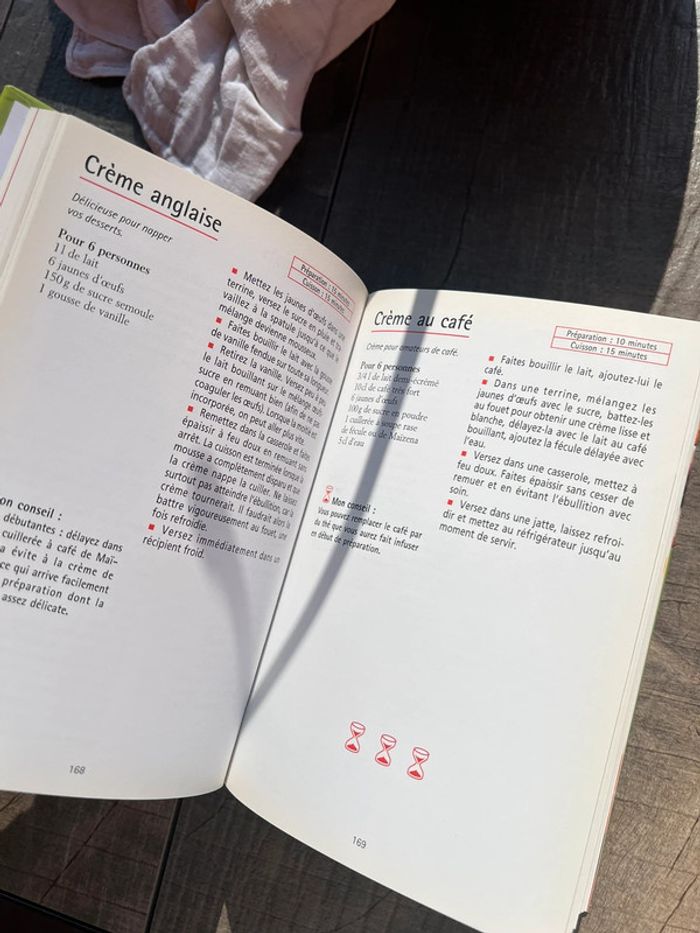 Crème anglaise
Délicieuse pour napper
vos desserts.
Pour 6 personnes
1 l de lait
6 jaunes d'œufs
150 g de sucre semoule
1 gousse de vanille
Préparation : 15 minutes
Cuisson : 15 minutes
■ Mettez les jaunes d'œufs dans une
terrine, versez le sucre en pluie et tra-
vaillez à la spatule jusqu'à ce que le
mélange devienne mousseux.
■ Faites bouillir le lait avec la gousse
de vanille fendue sur toute sa longueur.
■ Retirez la vanille. Versez peu à peu
le lait bouillant sur le mélange œufs-
sucre en remuant bien (afin de ne pas
coaguler les œufs). Lorsque la moitié est
incorporée, on peut aller plus vite.
■ Remettez dans la casserole et faites
épaissir à feu doux en remuant sans
arrêt. La cuisson est terminée lorsque la
mousse a complètement disparu et que
la crème nappe la cuiller. Ne laissez
surtout pas atteindre l'ébullition, car la
crème tournerait. Il faudrait alors la
battre vigoureusement au fouet, une
fois refroidie.
■ Versez immédiatement dans un
récipient froid.
on conseil :
débutantes : délayez dans
cuillerée à café de Maï-
a évite à la crème de
ce qui arrive facilement
préparation dont la
assez délicate.
168
Crème au café
Crème pour amateurs de café.
Préparation : 10 minutes
Cuisson : 15 minutes
Pour 6 personnes
3/4 l de lait demi-écrémé
10 cl de café très fort
6 jaunes d'œufs
100 g de sucre en poudre
1 cuillerée à soupe rase
de fécule ou de Maïzena
5 cl d'eau
■ Faites bouillir le lait, ajoutez-lui le
café.
■ Dans une terrine, mélangez les
jaunes d'œufs avec le sucre, battez-les
au fouet pour obtenir une crème lisse et
blanche, délayez-la avec le lait au café
bouillant, ajoutez la fécule délayée avec
l'eau.
■ Versez dans une casserole, mettez à
feu doux. Faites épaissir sans cesser de
remuer et en évitant l'ébullition avec
soin.
■ Versez dans une jatte, laissez refroi-
dir et mettez au réfrigérateur jusqu'au
moment de servir.
Mon conseil :
Vous pouvez remplacer le café par
du thé que vous aurez fait infuser
en début de préparation.
169